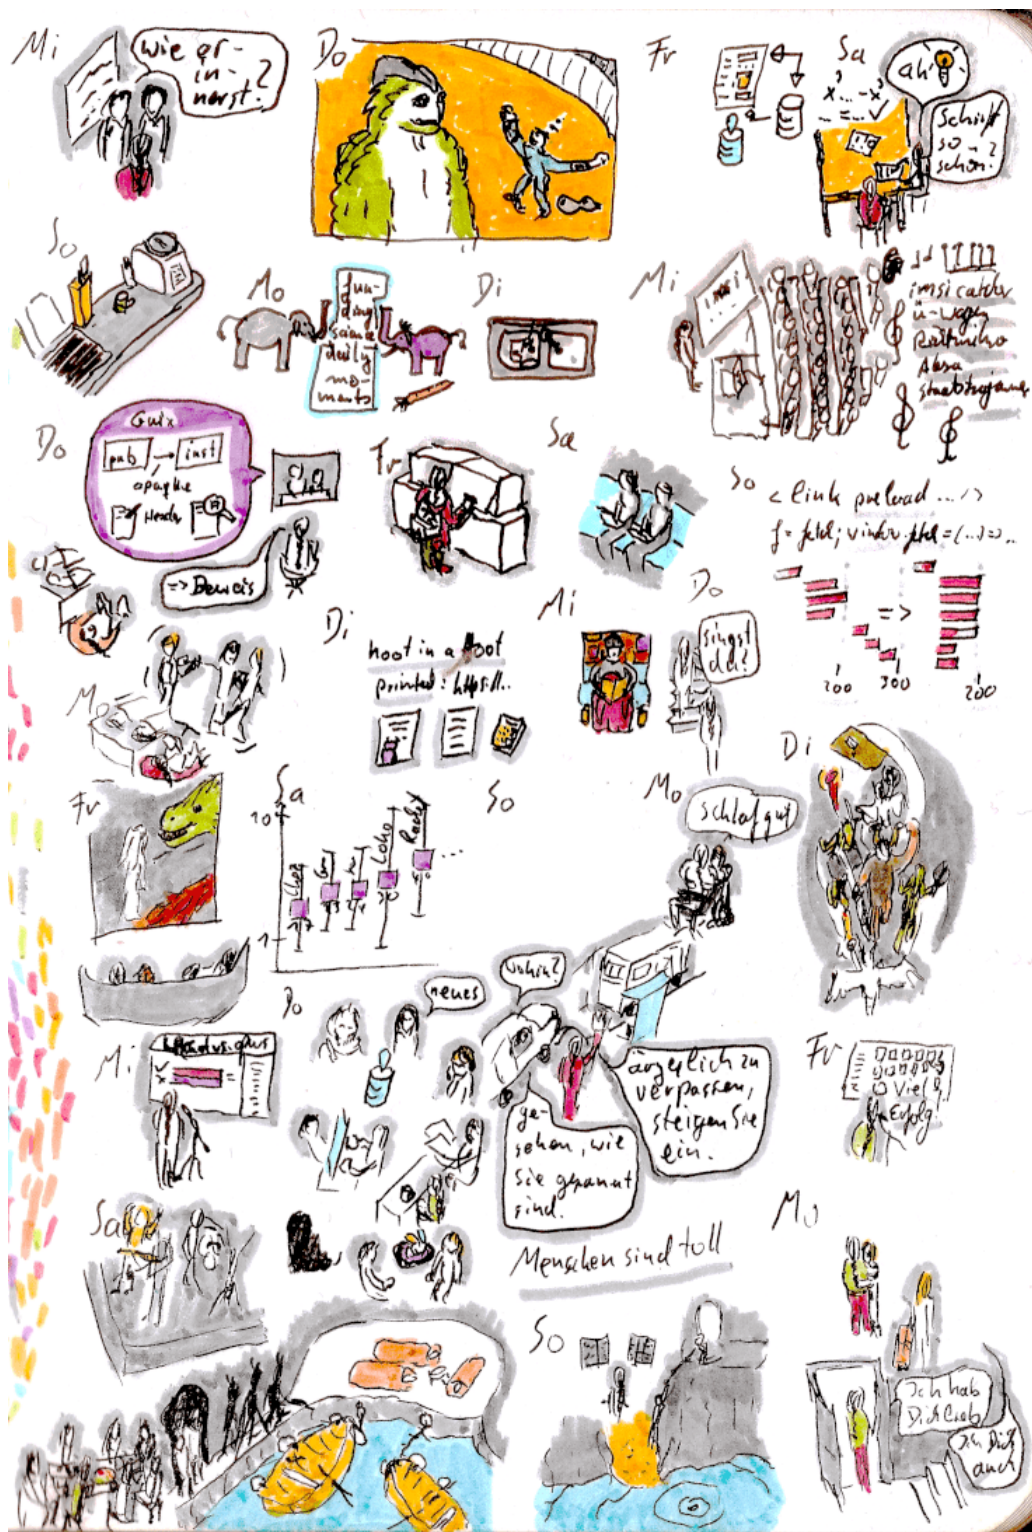 Mi
wie er-
in-
nerst?
Do
Fr
Sa
ah
schrift
so
schön?
So
Mo
fun-
ding
science
daily
mo-
ments
Di
Mi
imsi catcher
ü-wagen
Do
Guix
pub
inst
Header
=> Beweis
Fr
Sa
So
<link preload .../>
200
300
200
Di
hoot in a
printed: https://..
Mi
Do
singst
du?
Mo
Fr
Sa
10
1
So
Mo
schlaf gut
Di
Mi
Do
neues
wohin?
ge-
sehen, wie
sie gerannt
sind.
ärgerlich zu
verpassen,
steigen Sie
ein.
Fr
Viel
Erfolg!
Sa
Menschen sind toll
So
Mo
Ich hab
Dich lieb
Ich Dich
auch